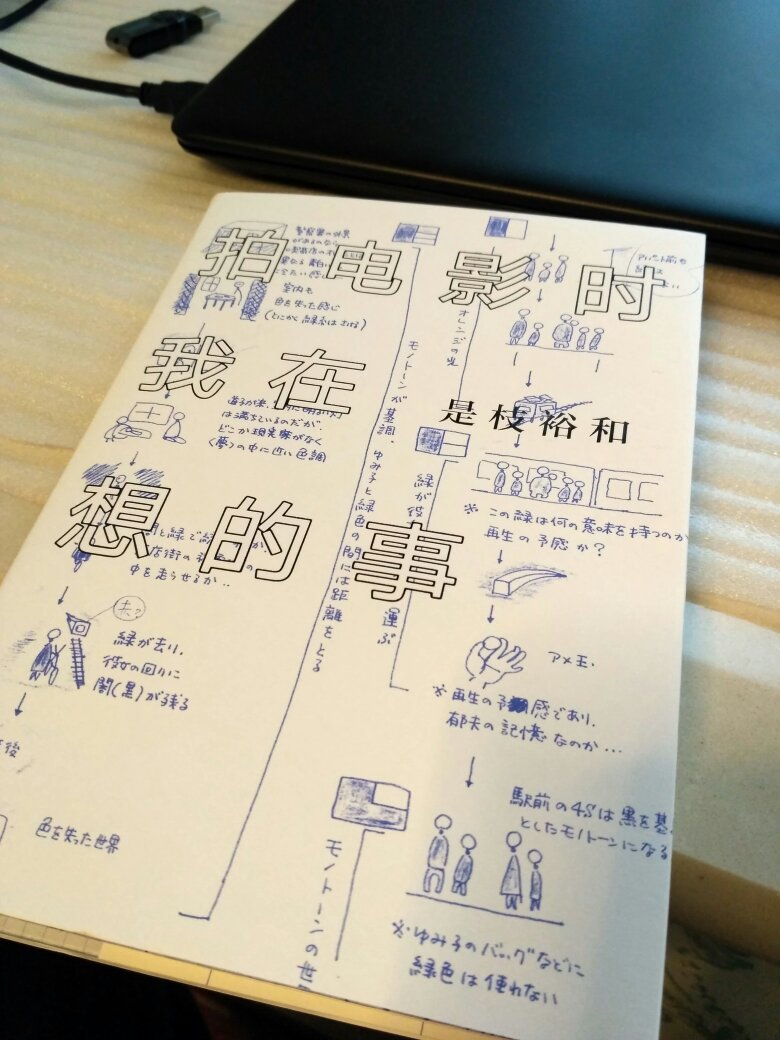 拍电影时
我在
想的事
是枝裕和
室内も
色を失った感じ
どこか現実感がなく
(夢)の中に近い色調
中を走らせるか‥
緑が去り、
彼女の回りに
闇(黒)が残る
色を失った世界
モノトーンが基調、ゆみ子と緑色の間には距離をとる
オレンジの光
緑が役
運ぶ
※この緑は何の意味を持つのか
再生の予感か?
アメ玉、
※再生の予感であり、
郁夫の記憶なのか…
駅前の4Sは黒を基
としたモノトーンになる
モノトーンの世
※ゆみ子のバッグなどに
緑色は使れない